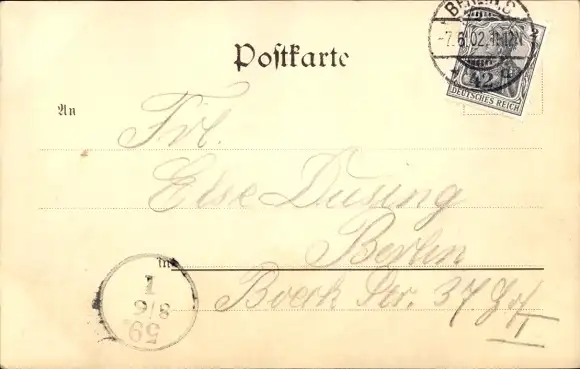 BERLIN.S.
-7.6.02.11-12V
* 42 a
Postkarte
DEUTSCHES REICH
An
Frl.
Else Dusing
Berlin
in
Boeckh Str. 37 Grt
II
1
8/6
59.